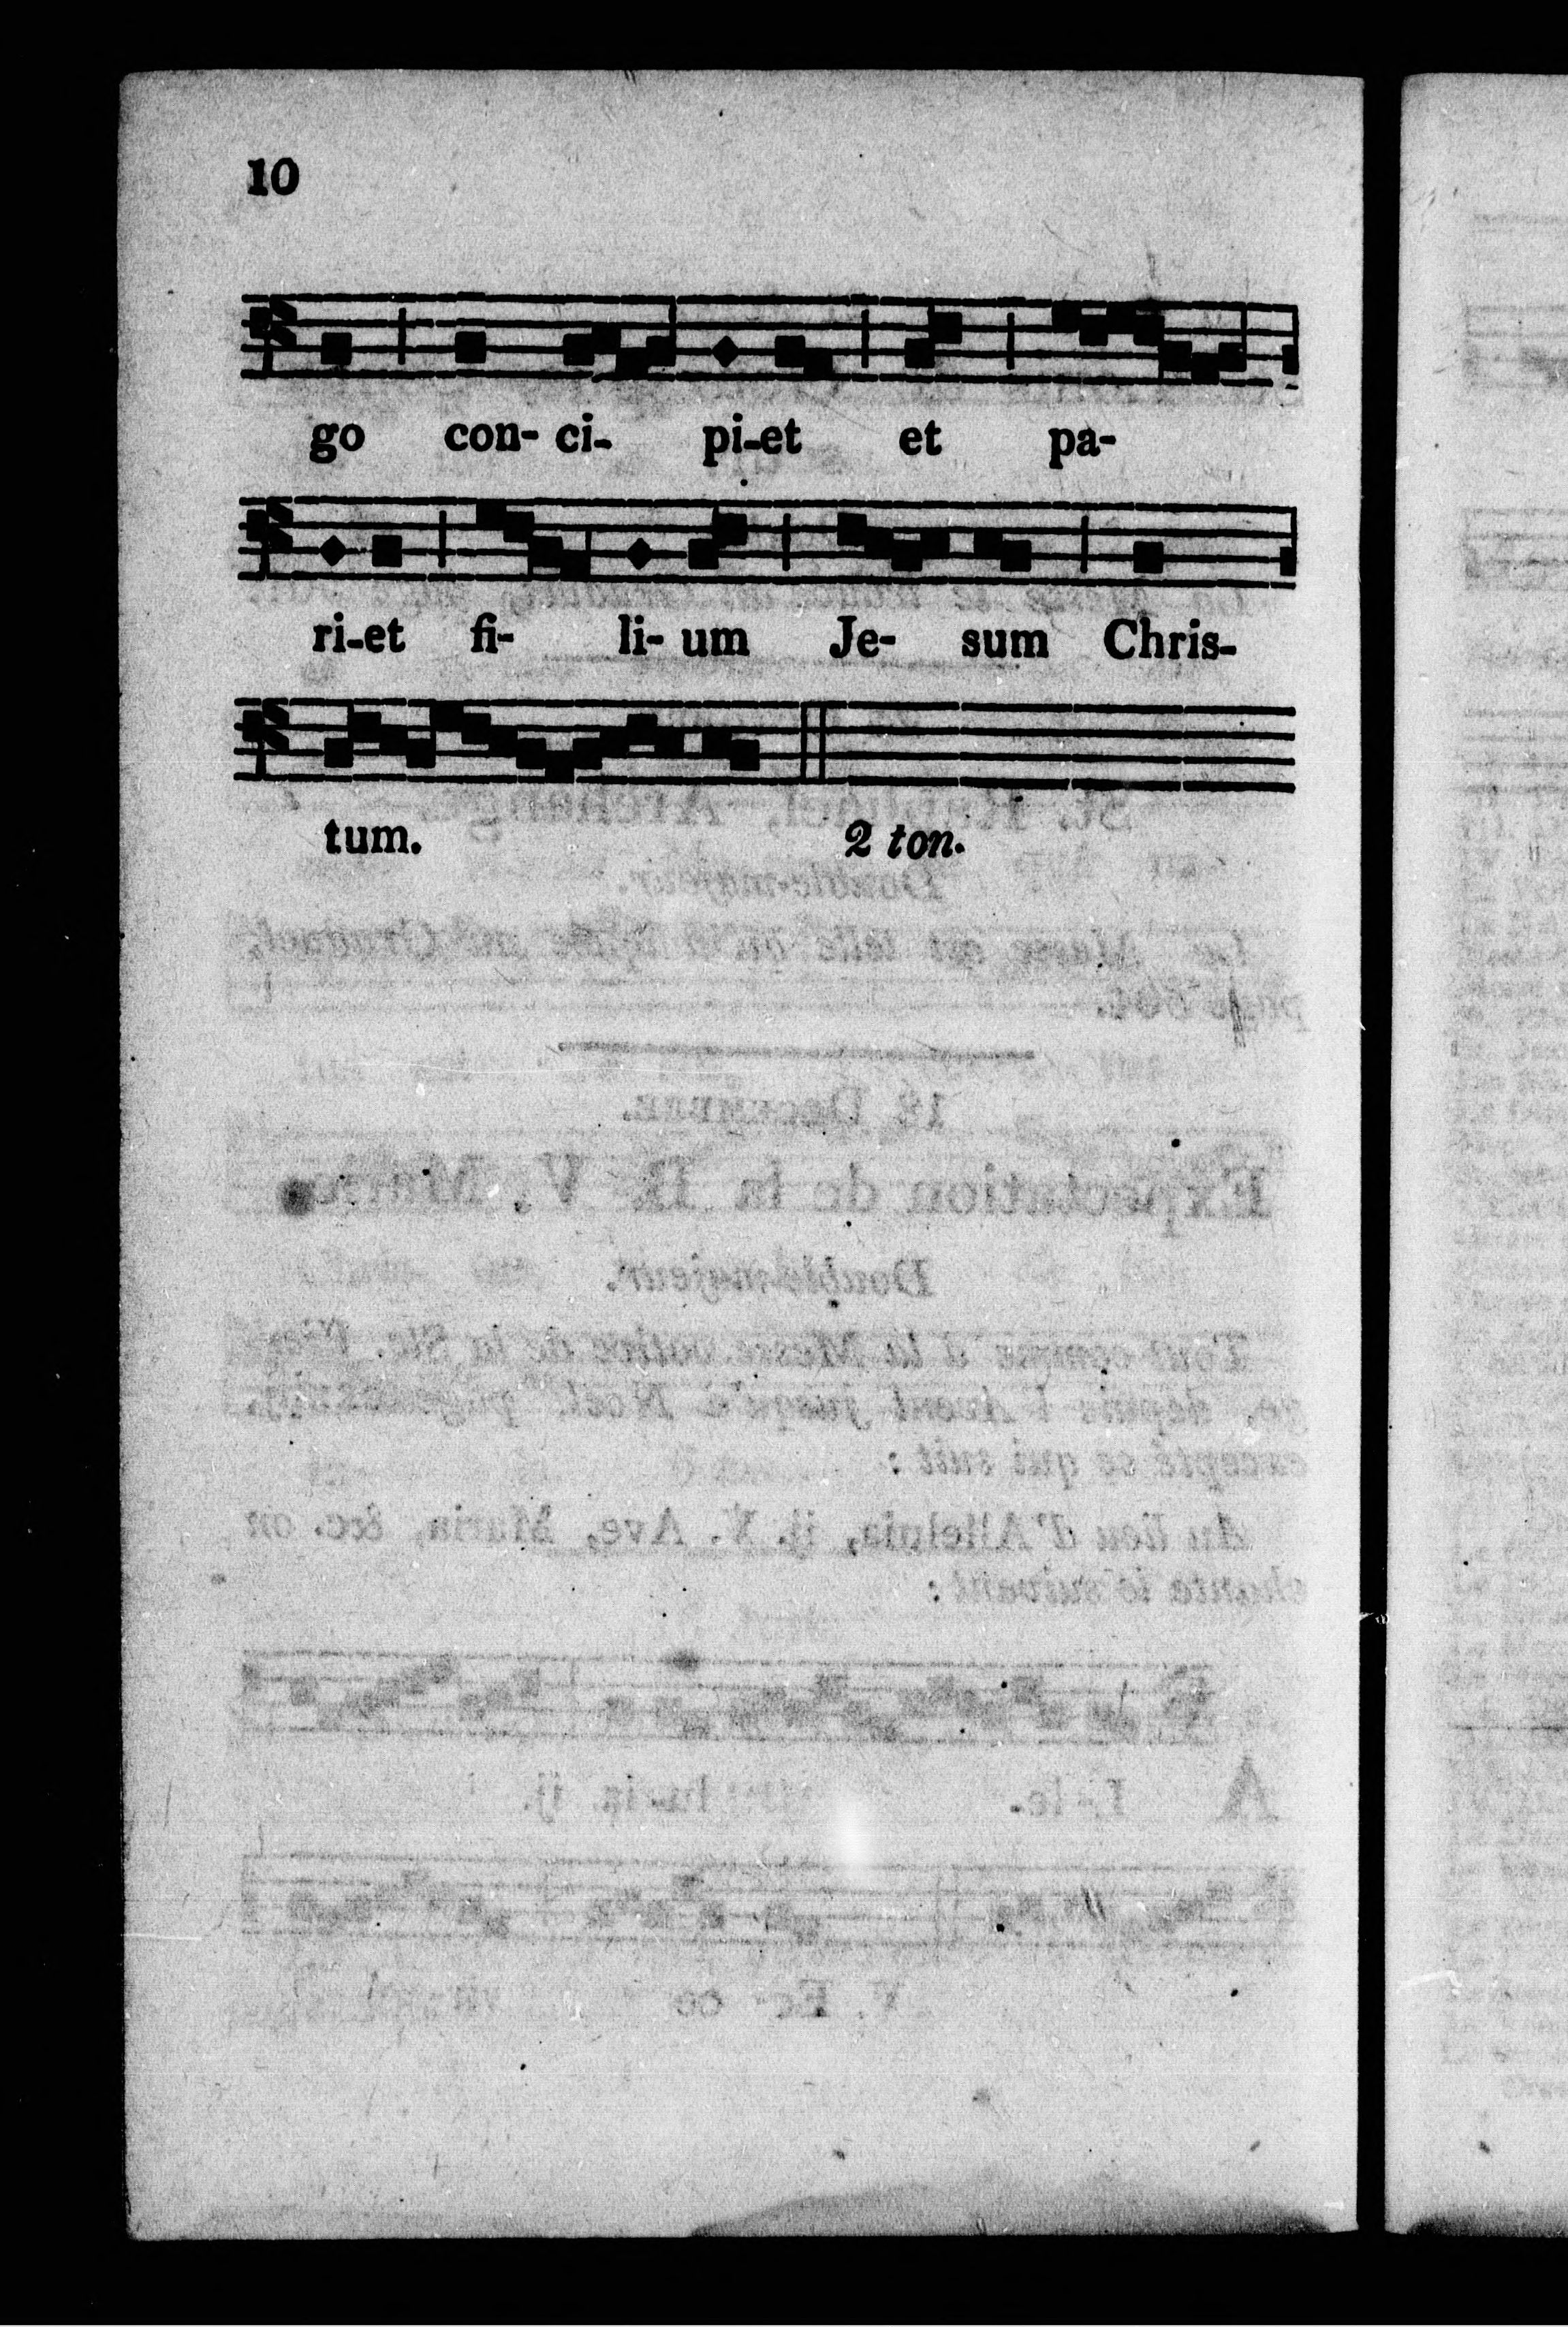 10
go con- ci- pi-et et pa-
ri-et fi- li- um Je- sum Chris-
tum. 2 ton.